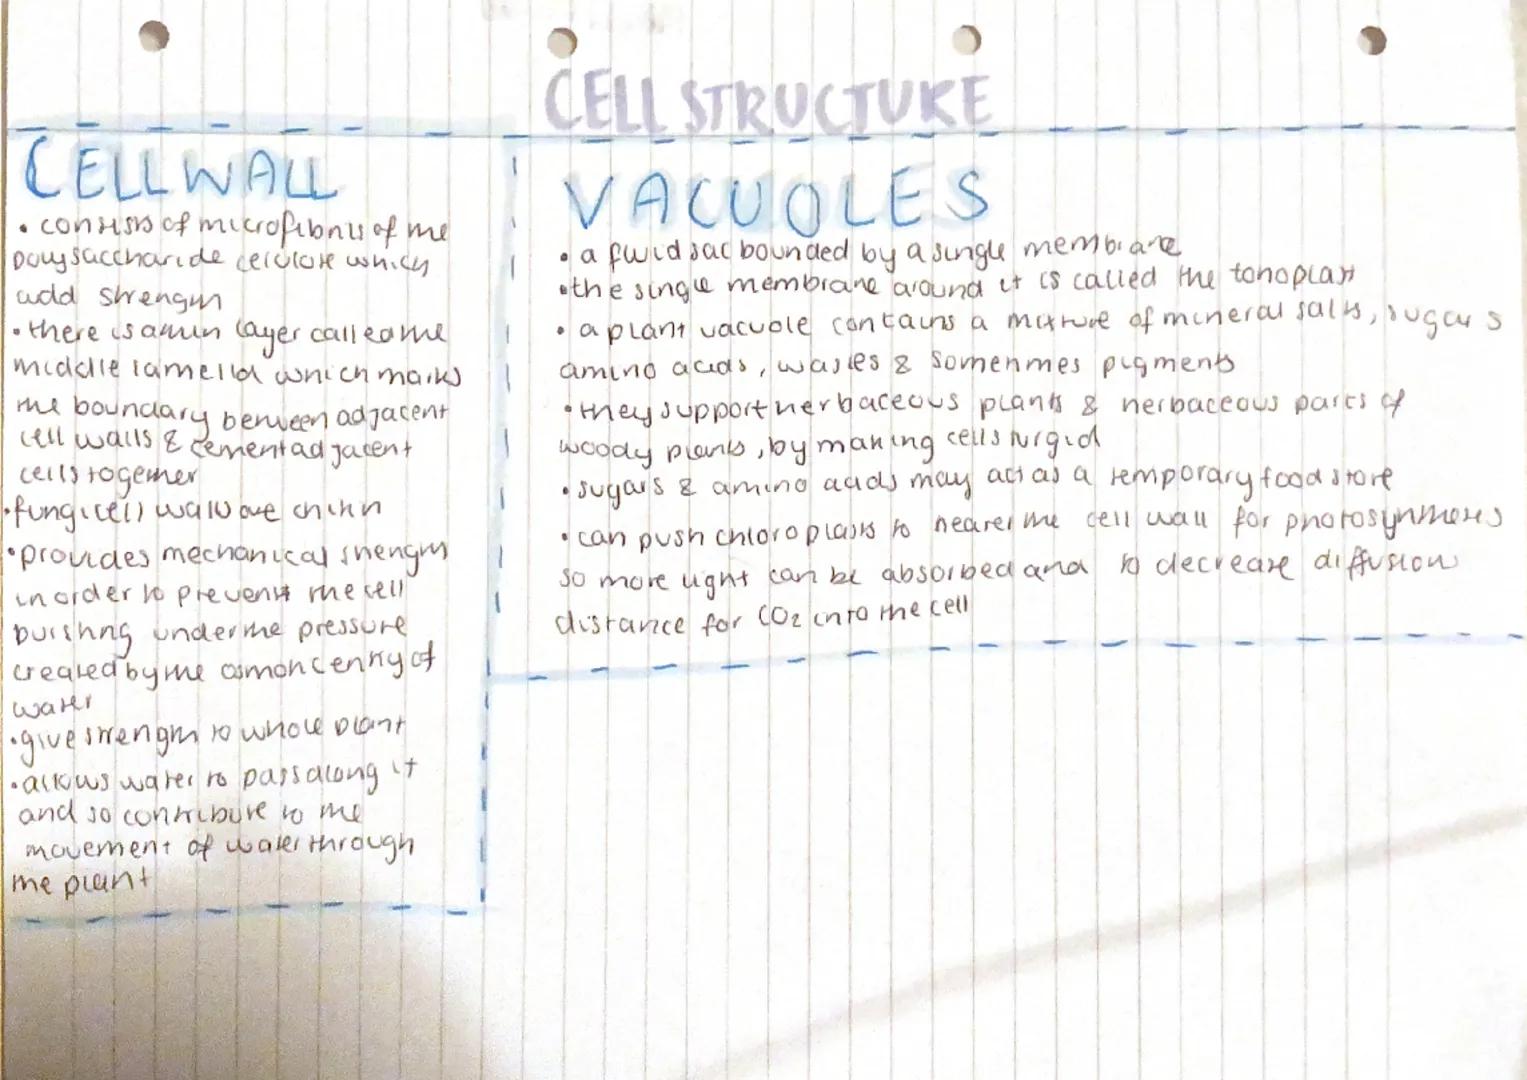 CELL STRUCTURE
CELL WALL
• consists of microfibrils of the
polysaccharide cellulose which
add strength
• there is a thin layer called the
middle lamella which marks
the boundary between adjacent
cell walls & cement adjacent
cells together
• fungi cell walls are chitin
• provides mechanical strength
in order to prevent the cell
bursting under the pressure
created by the osmotic entry of
water
• give strength to whole plant
• allows water to pass along it
and so contribute to the
movement of water through
the plant
VACUOLES
• a fluid sac bounded by a single membrane
• the single membrane around it is called the tonoplast
• a plant vacuole contains a mixture of mineral salts, sugars
amino acids, wastes & sometimes pigments
• they support herbaceous plants & herbaceous parts of
woody plants, by making cells turgid
• sugars & amino acids may act as a temporary food store
• can push chloroplasts to nearer the cell wall for photosynthesis
so more light can be absorbed and to decrease diffusion
distance for CO₂ into the cell